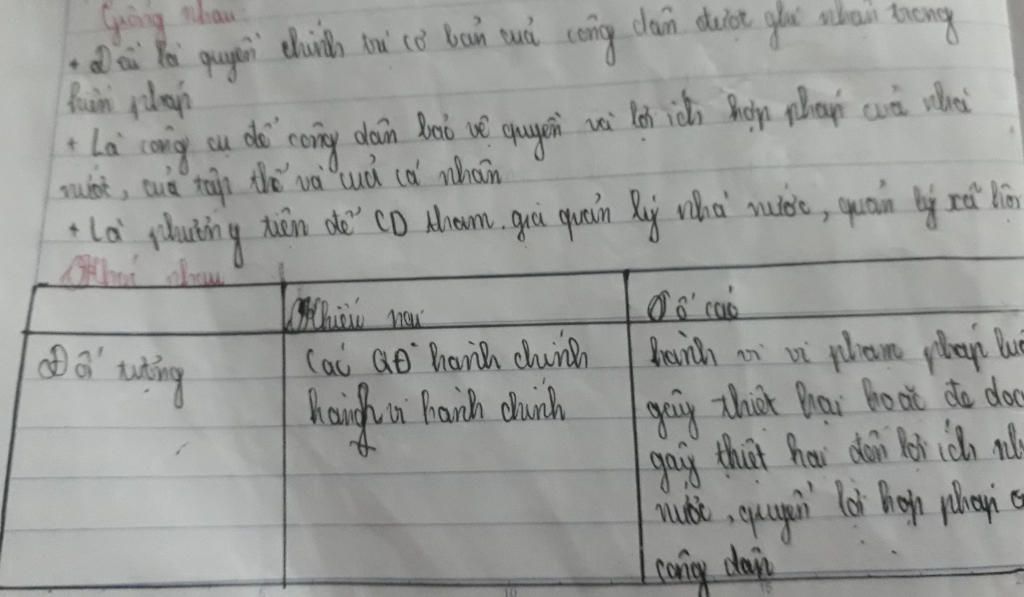 Giống nhau:
+ Đều là quyền chính trị cơ bản của công dân được ghi nhận trong
hiến pháp
+ Là công cụ để công dân bảo vệ quyền và lợi ích hợp pháp của nhà
nước, của tập thể và của cá nhân
+ Là phương tiện để CD tham gia quản lý nhà nước, quản lý xã hội
Khác nhau
Khiếu nại
Tố cáo
Đối tượng
Các QĐ hành chính
hành vi hành chính
hành vi vi phạm pháp luậ
gây thiệt hại hoặc đe dọa
gây thiệt hại đến lợi ích nh
nước, quyền lợi hợp pháp c
công dân